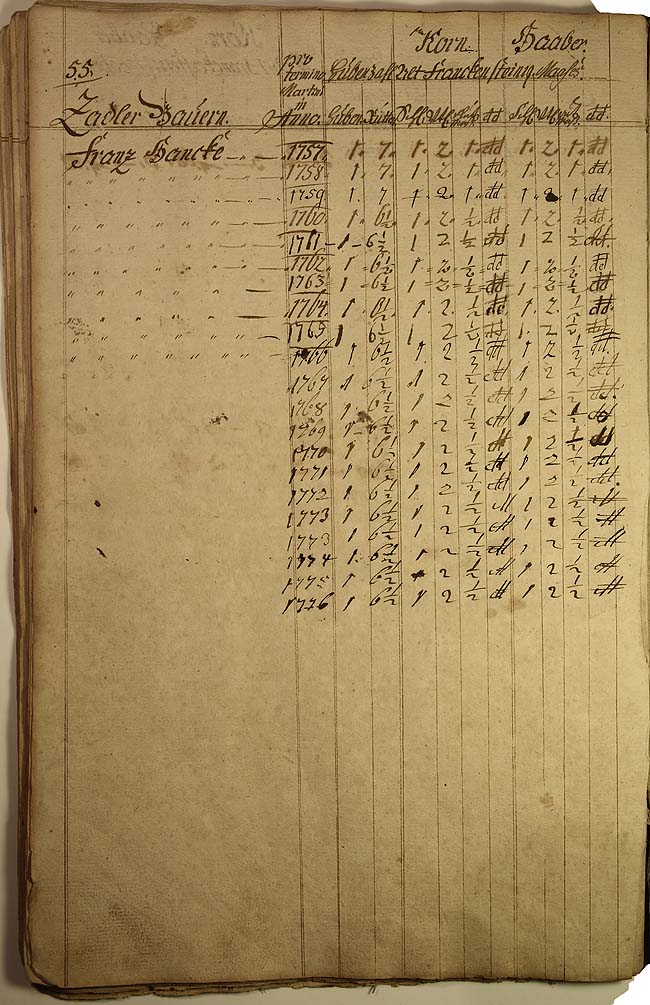 Korn Haaber
55. pro termino Martini in Anno
Zadler Bauern.
Franz Hancke 1757. 1. 7. 1. 2. 1. dd 1. 2. 1. dd
1758 1. 7. 1. 2. 1. dd. 1. 2. 1. dd
1759 1. 7 1 2 1 dd. 1 2 1. dd
1760 1. 6½ 1. 2. ½ dd 1. 2. ½ dd
1761 1 6½ 1 2 ½ dd 1 2 ½ dd.
1762 1 6½ 1 2 ½ dd 1 2 ½ dd
1763 1 6½ 1 2 ½ dd 1 2 ½ dd
1764 1. 6½ 1. 2. ½ dd 1. 2. ½ dd.
1765 1 6½ 1 2 ½ dd 1. 2 ½ dd
1766 1 6½ 1. 2 ½ dd 1 2 ½ dd.
1767 1 6½ 1 2 ½ dd 1 2 ½ dd
1768 1 6½ 1 2 ½ dd 1 2 ½ dd
1769 1 6½ 1 2 ½ dd 1 2 ½ dd
1770 1 6½ 1 2 ½ dd 1 2 ½ dd
1771 1 6½ 1 2 ½ dd 1 2 ½ dd
1772 1 6½ 1 2 ½ dd 1 2 ½ dd
1773 1 6½ 1 2 ½ dd 1 2 ½ dd
1773 1 6½ 1 2 ½ dd 1 2 ½ dd
1774 1. 6½ 1 2 ½ dd 1 2 ½ dd
1775 1 6½ 1 2 ½ dd 1 2 ½ dd
1776 1 6½ 1 2 ½ dd 1 2 ½ dd